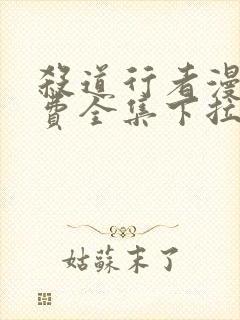 殺道行者漫
費全集下拉
姑蘇末了